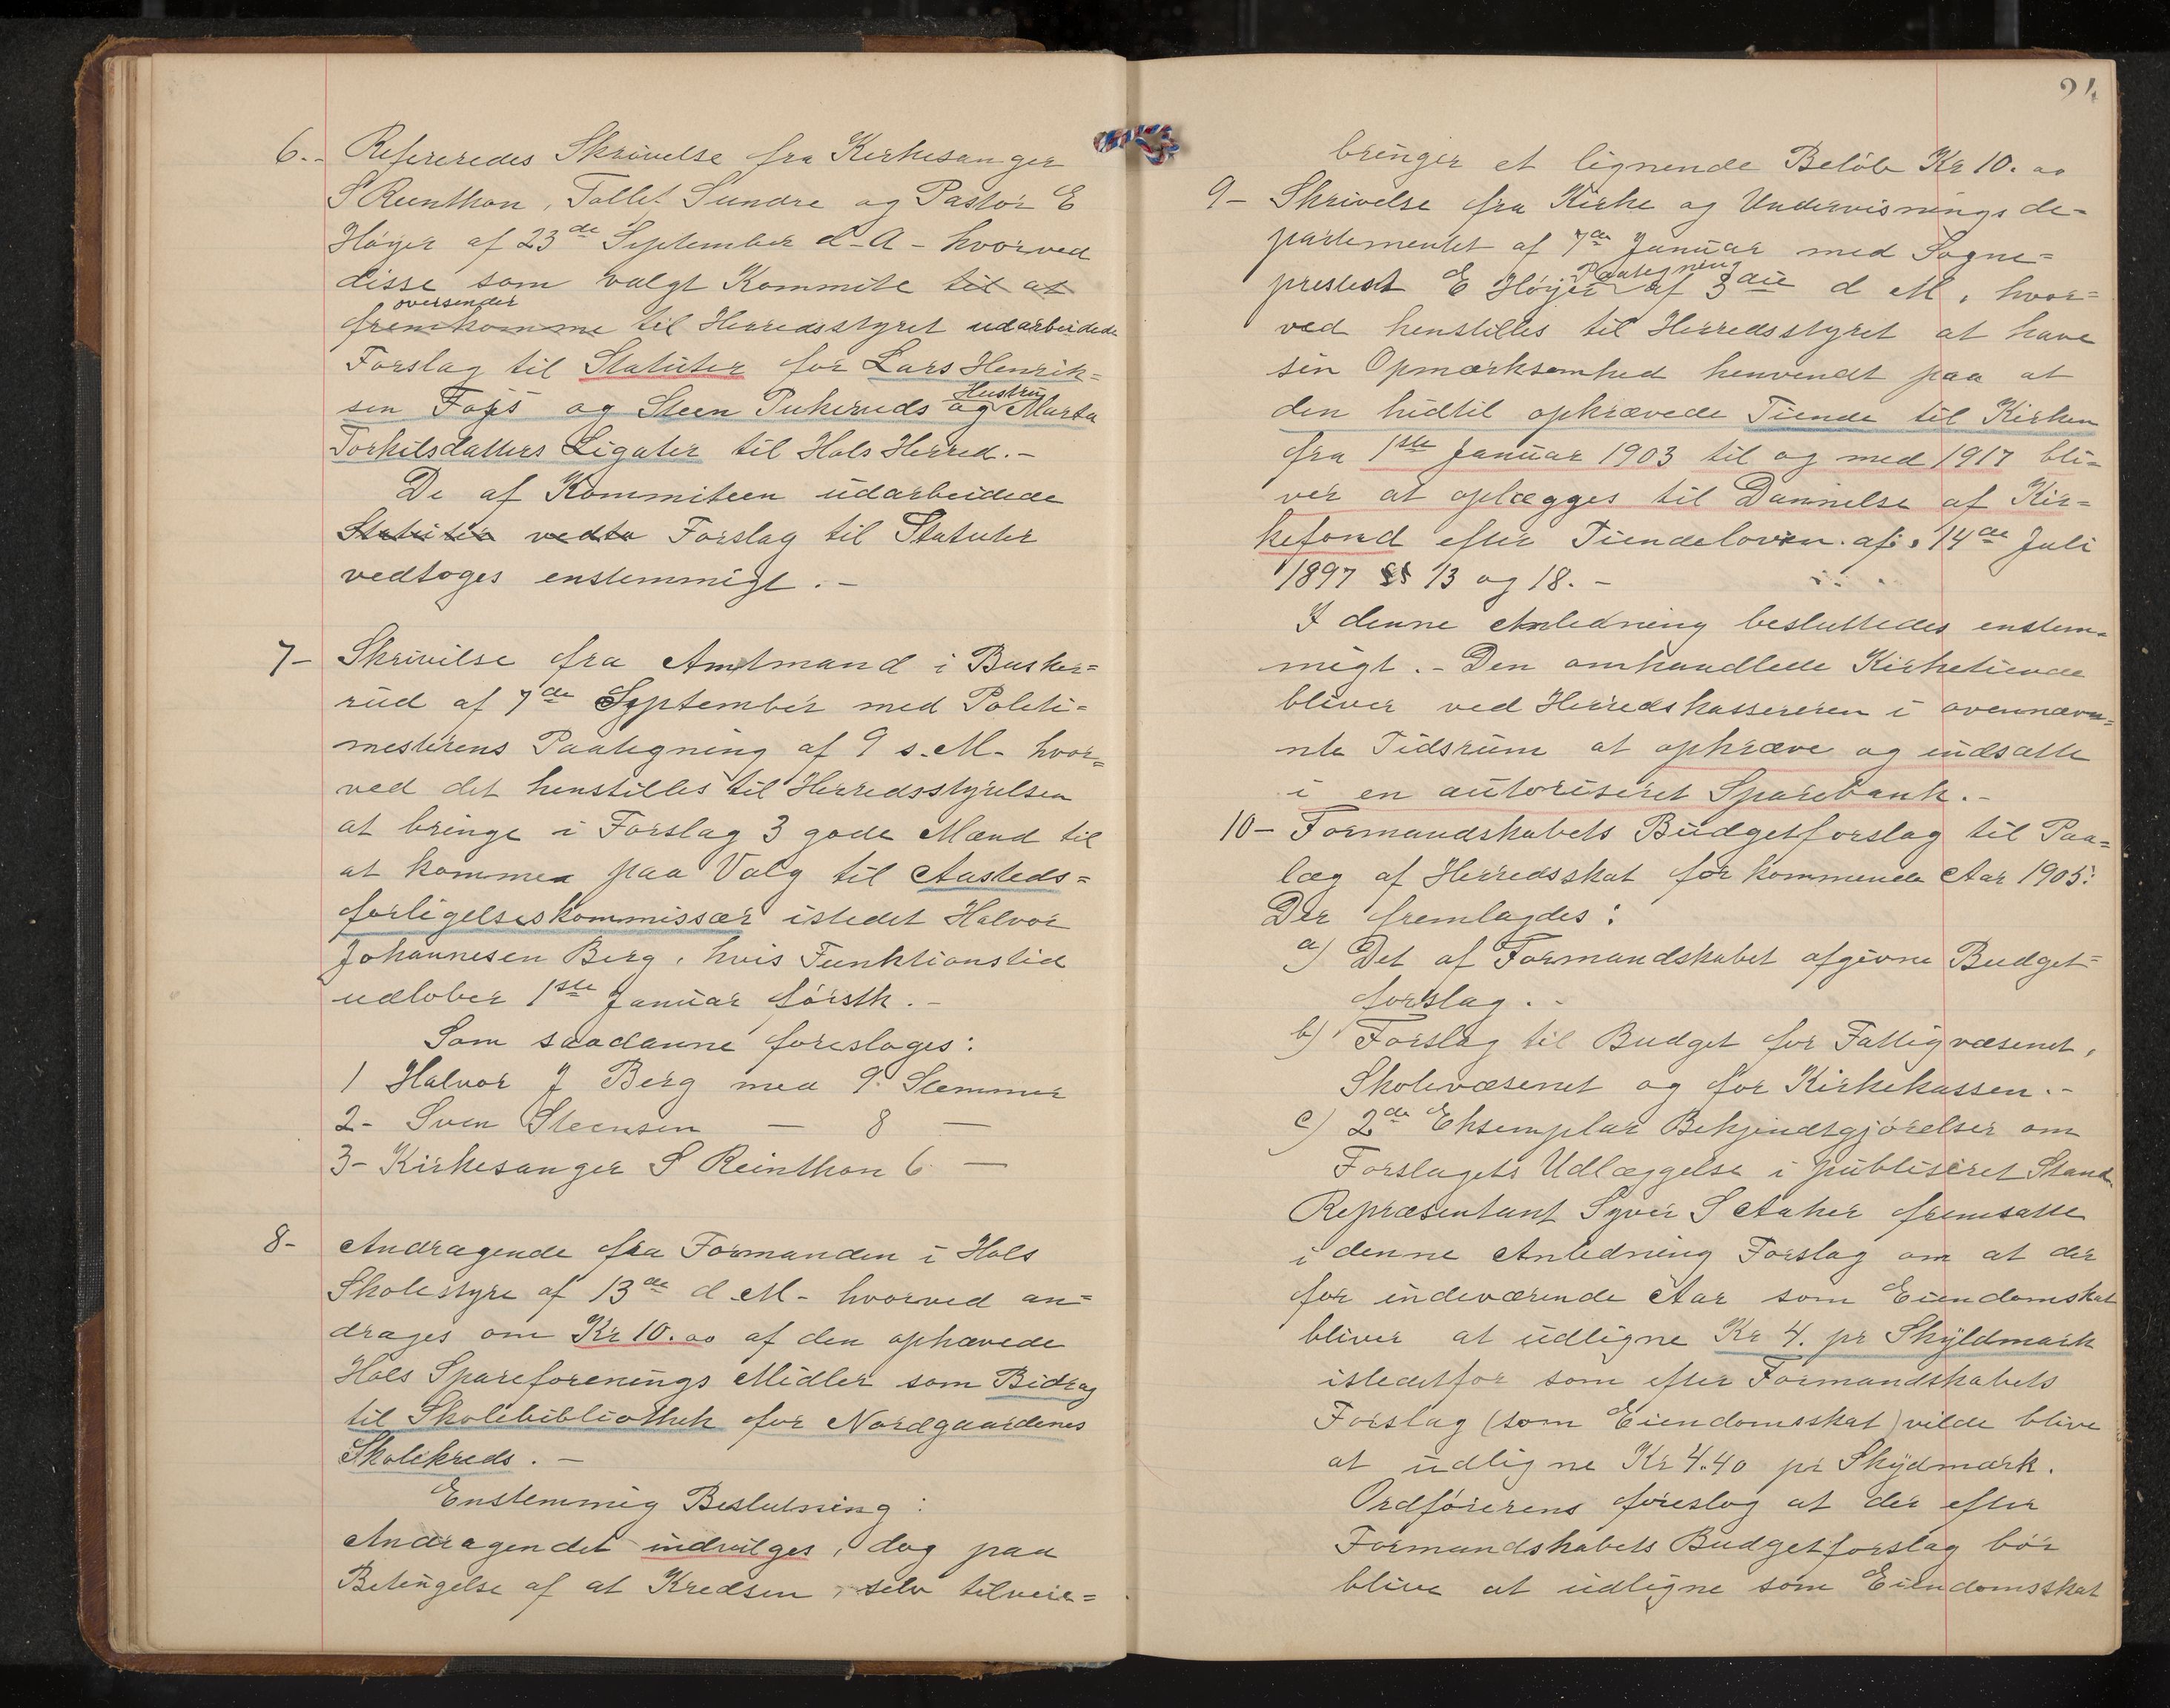 6.- Refereredes Skrivelse fra Kirkesanger
S Reinthon, Tollef Sundre og Pastor E
Høyer af 23de September d-A- hvorved
disse som valgt Kommite til at
oversender
fremkomme til Herredsstyret udarbeidede
Forslag til Statuter for Lars Henrik=
Hustru
sen Fojs og Steen Pukeruds og Marta
Torkilsdatters Ligater til Hols Herred.-
De af Kommiteen udarbeidede
Statuter vedto Forslag til Statuter
vedtoges enstemmigt.-
7- Skrivilse fra Amtmand i Busker=
rud af 7de September med Politi=
mesterens Paategning af 9 s.M- hvor=
ved det henstilles til Herredsstyrelsen
at bringe i Forslag 3 gode Mænd til
at komme paa Valg til Aasteds=
forligelseskommissær istedet Halvor
Johannesen Berg, hvis Funktionstid
udlober 1ste Januar førstk.-
Som saadanne foreslages:
1 Halvor J Berg med 9 Stemmer
2- Sven Steensen — 8 —
3- Kirkesanger S Reinthon 6 —
8- Andragende fra Formanden i Hols
Skolestyre af 13de d M- hvorved an=
drages om Kr 10.00 af den ophævede
Hols Spareforenings Midler som Bidrag
til Skolebibliothek for Nordgaardenes
Skolekreds.-
Enstemmig Beslutning:
Andragendet indvilges, dog paa
Betingelse af at Kredsen, selv tilveie=
24
bringer et lignende Beløb Kr 10.00
9- Skrivelse fra Kirke og Undervisningsde=
partementet af 7de Januar med Sogne=
Paategning
prestest E Høyer af 3die d M, hvor=
ved henstilles til Herredsstyret at have
sin Opmærksomhed henvendt paa at
den hidtil opkrævede Tiende til Kirken
fra 1ste Januar 1903 til og med 1917 bli=
ver at oplægges til Dannelse af Kir=
kefond efter Tiendeloven af 14de Juli
1897 §§ 13 og 18.-
I denne Anledning besluttedes enstem=
migt.- Den omhandlede Kirketiende
bliver ved Herredskassereren i ovennævn=
nte Tidsrum at opkræve og indsatte
i en autoriseret Sparebank.-
10- Formandskabets Budgetforslag til Paa=
læg af Herredsskat for kommende Aar 1905:
Der fremlagdes:
a) Det af Formandskabet afgivne Budget=
forslag.-
b) Forslag til Budget for Fattigvæsenet,
Skolevæsenet og for Kirkekassen.-
c) 2de Eksemplar Bekjendtgjørelser om
Forslagets Udlæggelse i publiseret Stand
Repræsentant Syver S Aaker fremsatte
i denne Anledning Forslag om at der
for indeværende Aar som Eiendomskat
bliver at udligne Kr 4. pr Skyldmark
istedetfor som efter Formandskabets
Forslag (som Eiendomsskat) vilde blive
at udligne Kr 4.40 pr Skydmark.
Ordførerens foreslog at der efter
Formandskabets Budgetforslag bør
blive at udligne som Eiendomsskat